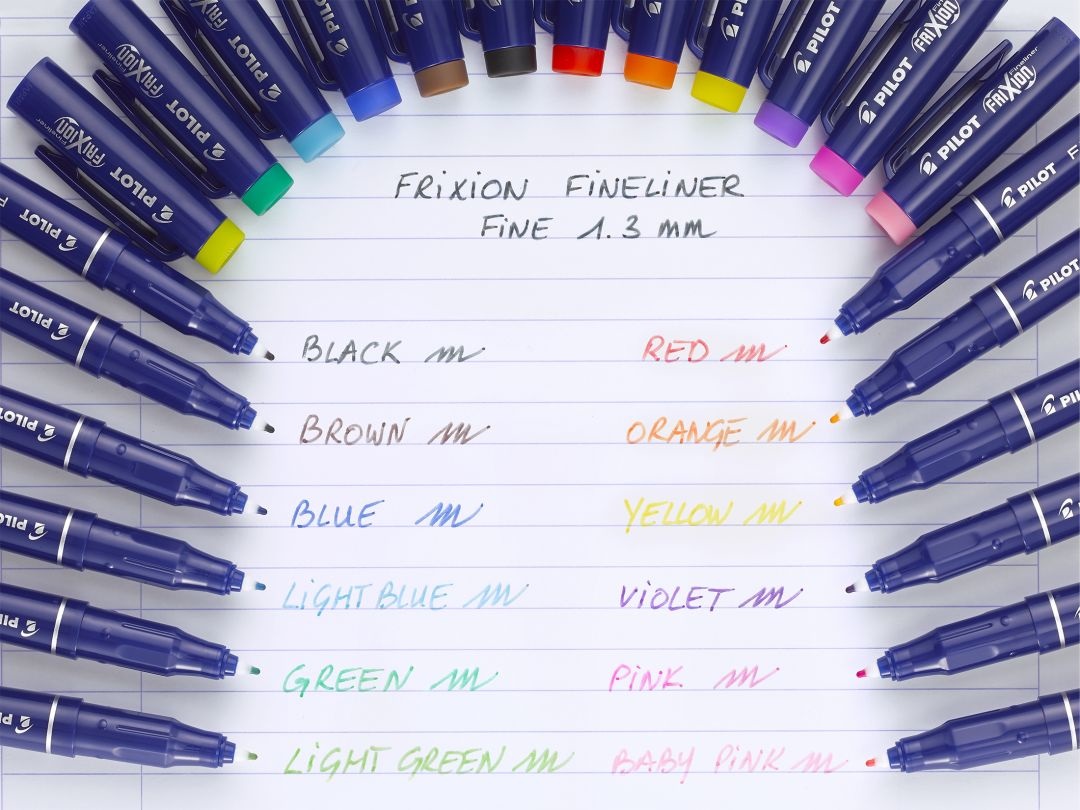 PILOT FRiXion Fineliner
PILOT FRiXion Fineliner
PILOT FRiXion
PILOT
PILOT
PILOT
PILOT
PILOT
PILOT
PILOT
PILOT
PILOT FRiXion
PILOT FRiXion Fineliner
FRiXiON FiNELiNER
FiNE 1.3 mm
BLACK
RED
BROWN
ORANGE
BLUE
YELLOW
LiGHT BLUE
ViOLET
GREEN
PiNK
LiGHT GREEN
BABY PiNK
PILOT
PILOT
PILOT
PILOT
PILOT
PILOT
PILOT
PILOT